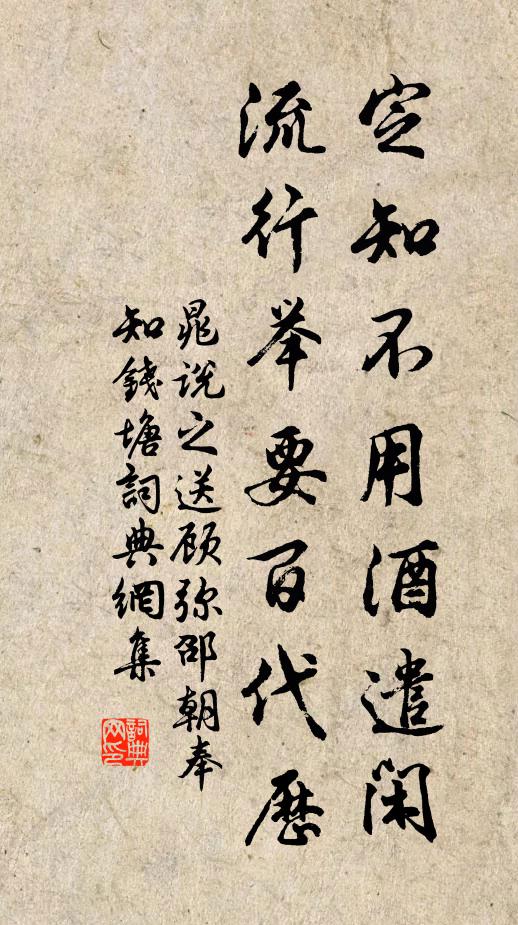 定知不用酒遣闲
流行举要百代歷
晁说之送顾弥邵朝奉
知錢塘詞典網集
詞典网印